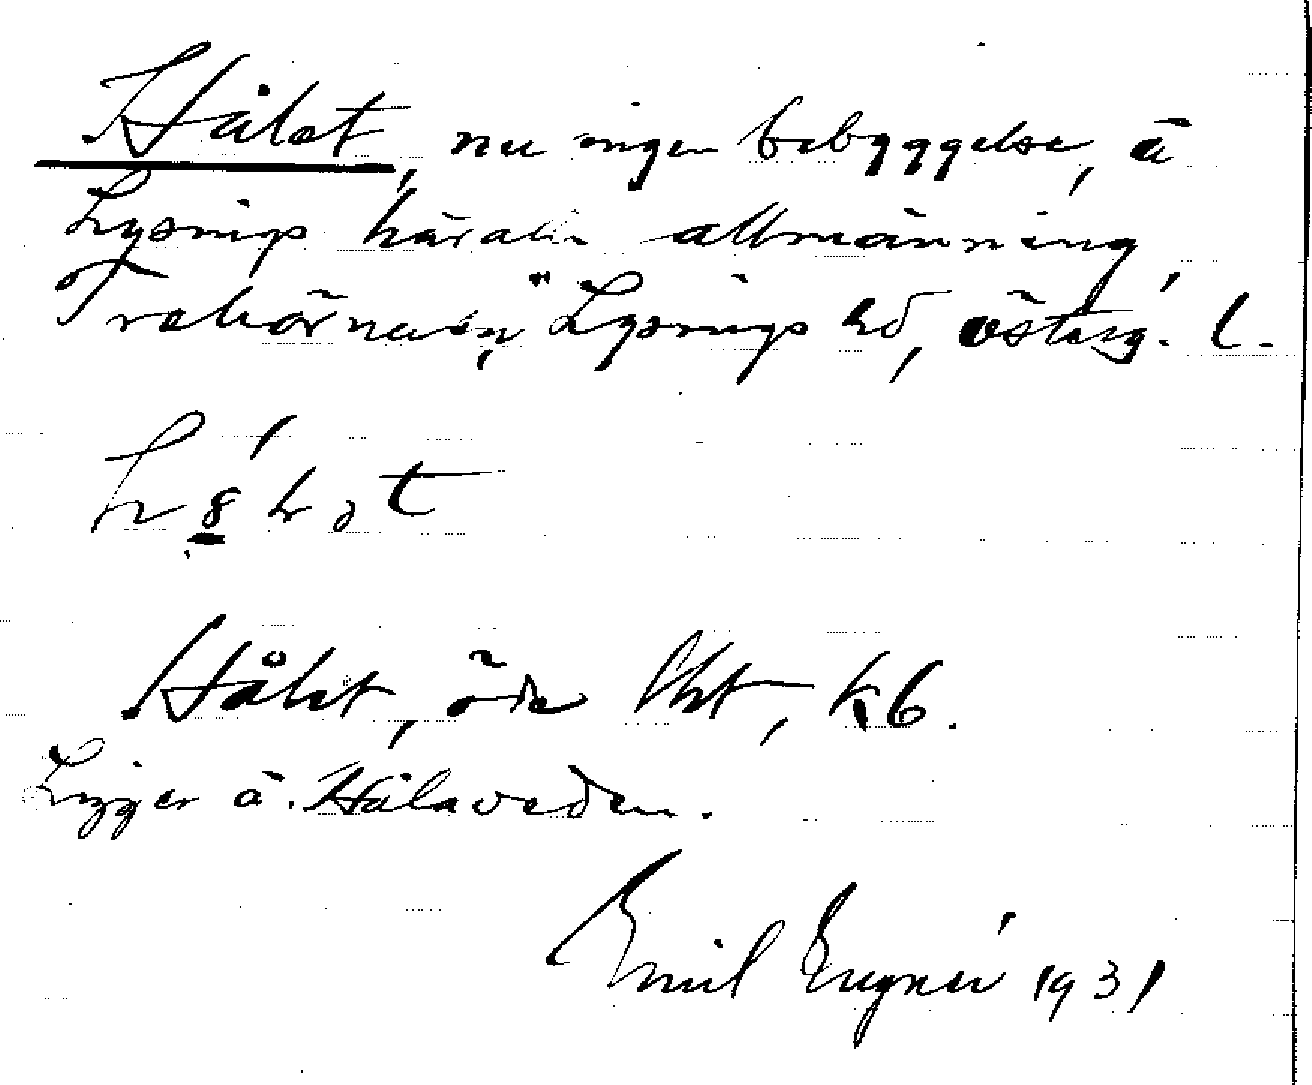 Hålet, nu ingen bebyggelse, å
Lysings härads allmänning
Trehörna sn, Lysings hd, Österg. l.
Hålet, öde lht, kb.
Ligger å Hålaveden.
Emil Engnér 1931